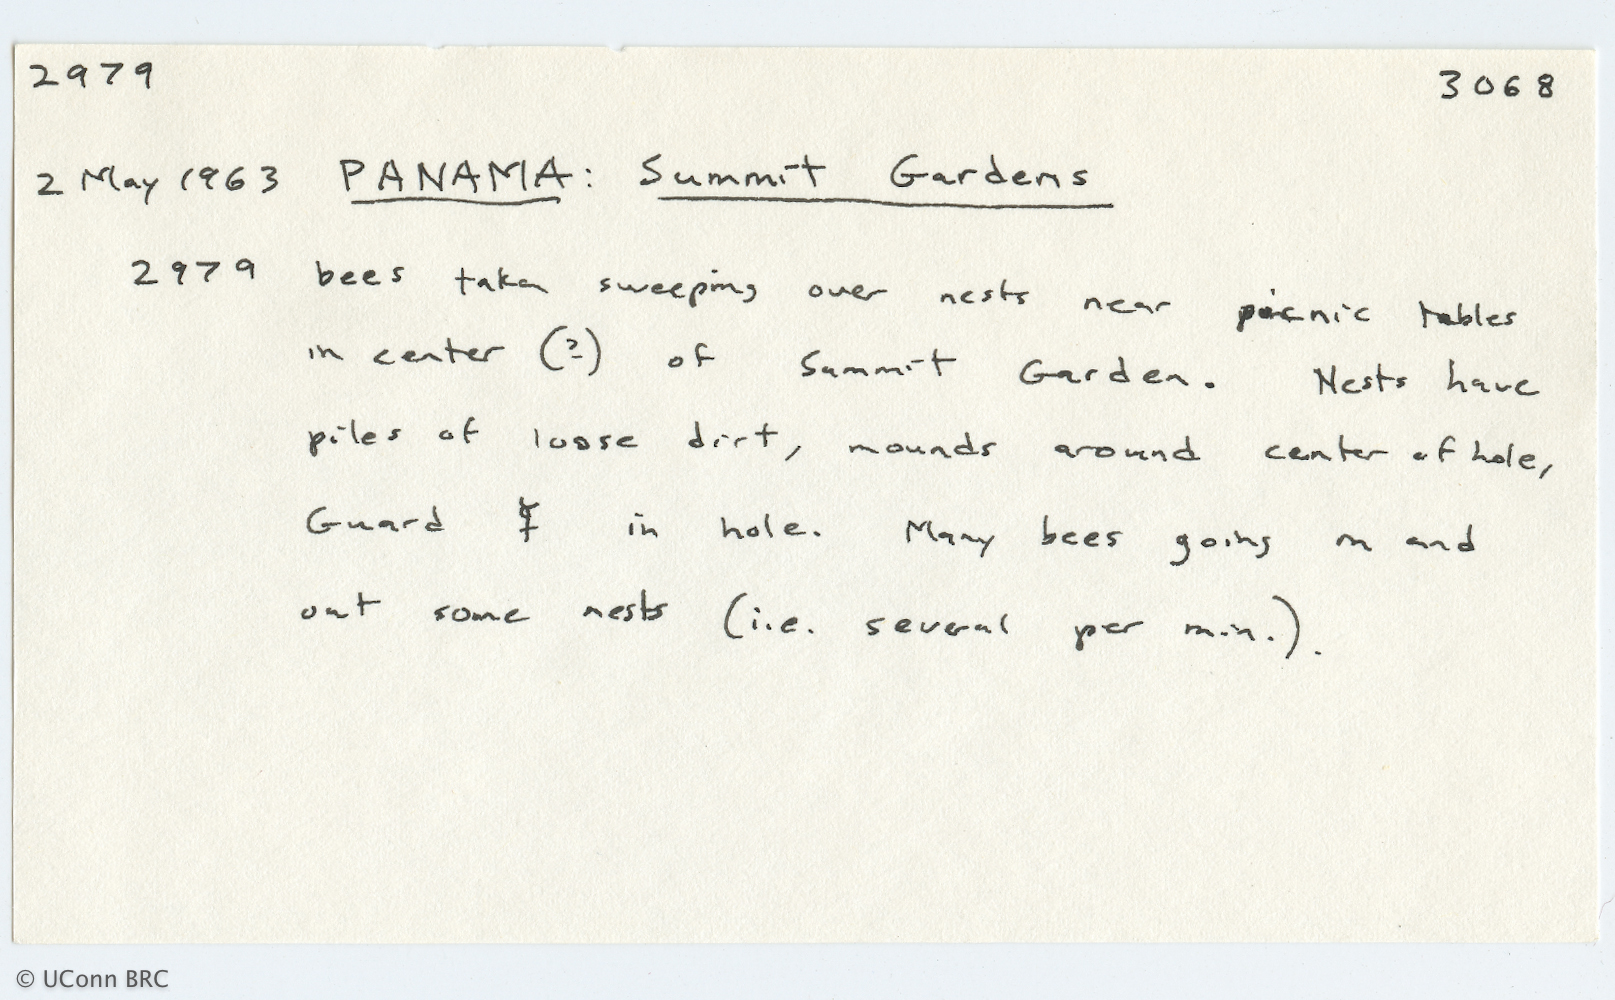 2979 3068
2 May 1963 PANAMA: Summit Gardens
2979 bees taken sweeping over nests near picnic tables
in center (?) of Summit Garden. Nests have
piles of loose dirt, mounds around center of hole,
Guard ☿ in hole. Many bees going in and
out some nests (i.e. several per min.).
© UConn BRC